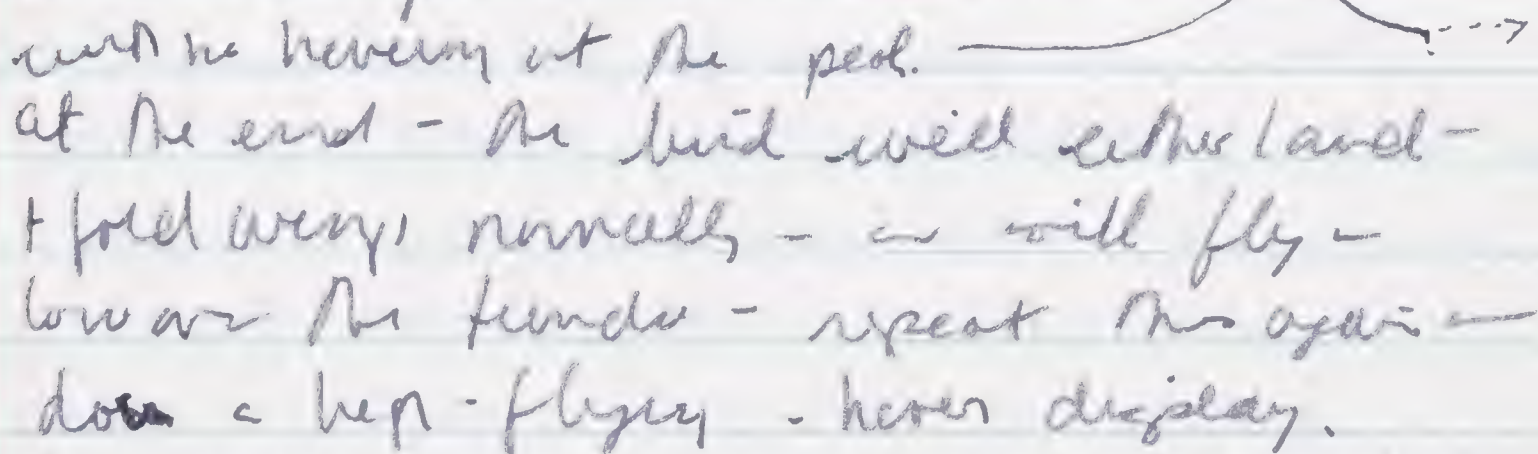 with no hovering at the peak.
at the end - the bird will either land -
+ fold wings normally - or will fly -
low over the tundra - repeat this again -
does a high-flying - hover display.